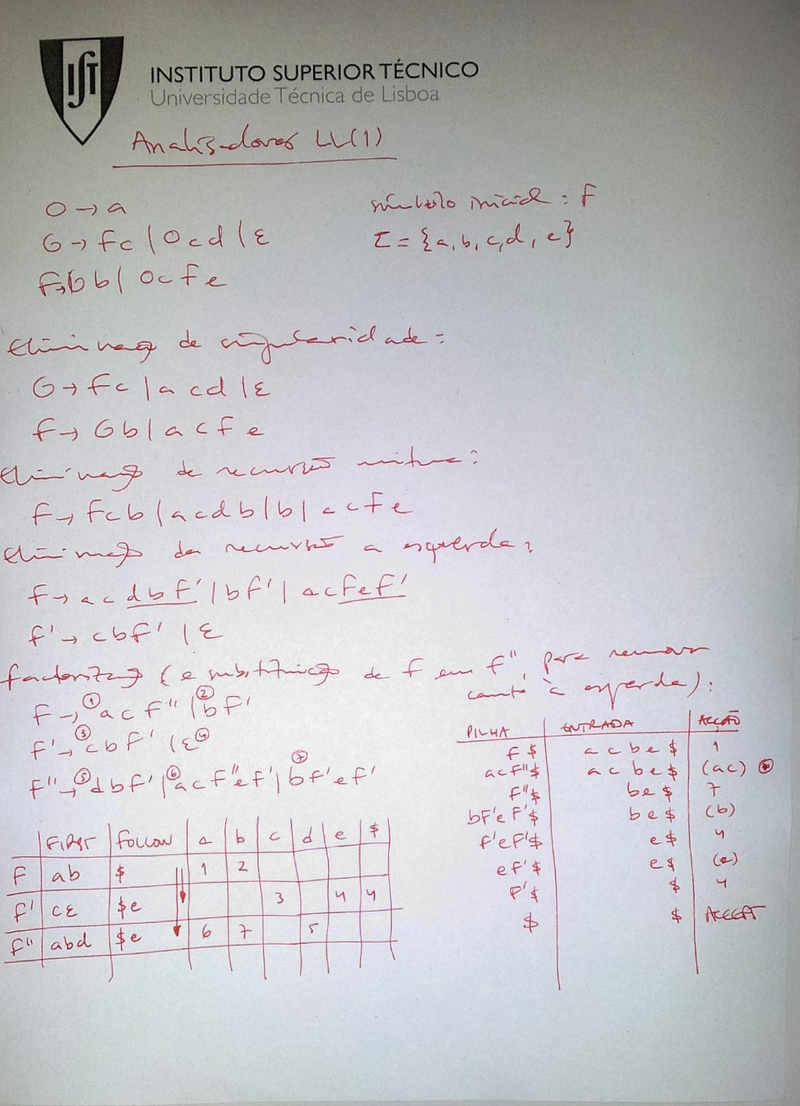 INSTITUTO SUPERIOR TÉCNICO
Universidade Técnica de Lisboa
Analisadores LL(1)
O → a
G → Fc | Ocd | ε
F → Gb | OcFe
símbolo inicial: F
Σ = {a, b, c, d, e}
Eliminação de singularidade:
G → Fc | acd | ε
F → Gb | acFe
Eliminação de recursão mútua:
F → Fcb | acdb | b | acFe
Eliminação da recursão à esquerda:
F → acdbF' | bF' | acFeF'
F' → cbF' | ε
Factorização (e substituição de F em F'', para remover
canto à esquerda):
F → ① acF'' | ② bF'
F' → ③ cbF' | ε ④
F'' → ⑤ dbF' | ⑥ acF''eF' | ⑦ bF'eF'
FIRST FOLLOW a b c d e $
F ab $ 1 2
F' cε $e 3 4 4
F'' abd $e 6 7 5
PILHA ENTRADA ACÇÃO
F$ acbe$ 1
acF''$ acbe$ (ac)
F''$ be$ 7
bF'eF'$ be$ (b)
F'eF'$ e$ 4
eF'$ e$ (e)
F'$ $ 4
$ $ ACCEPT